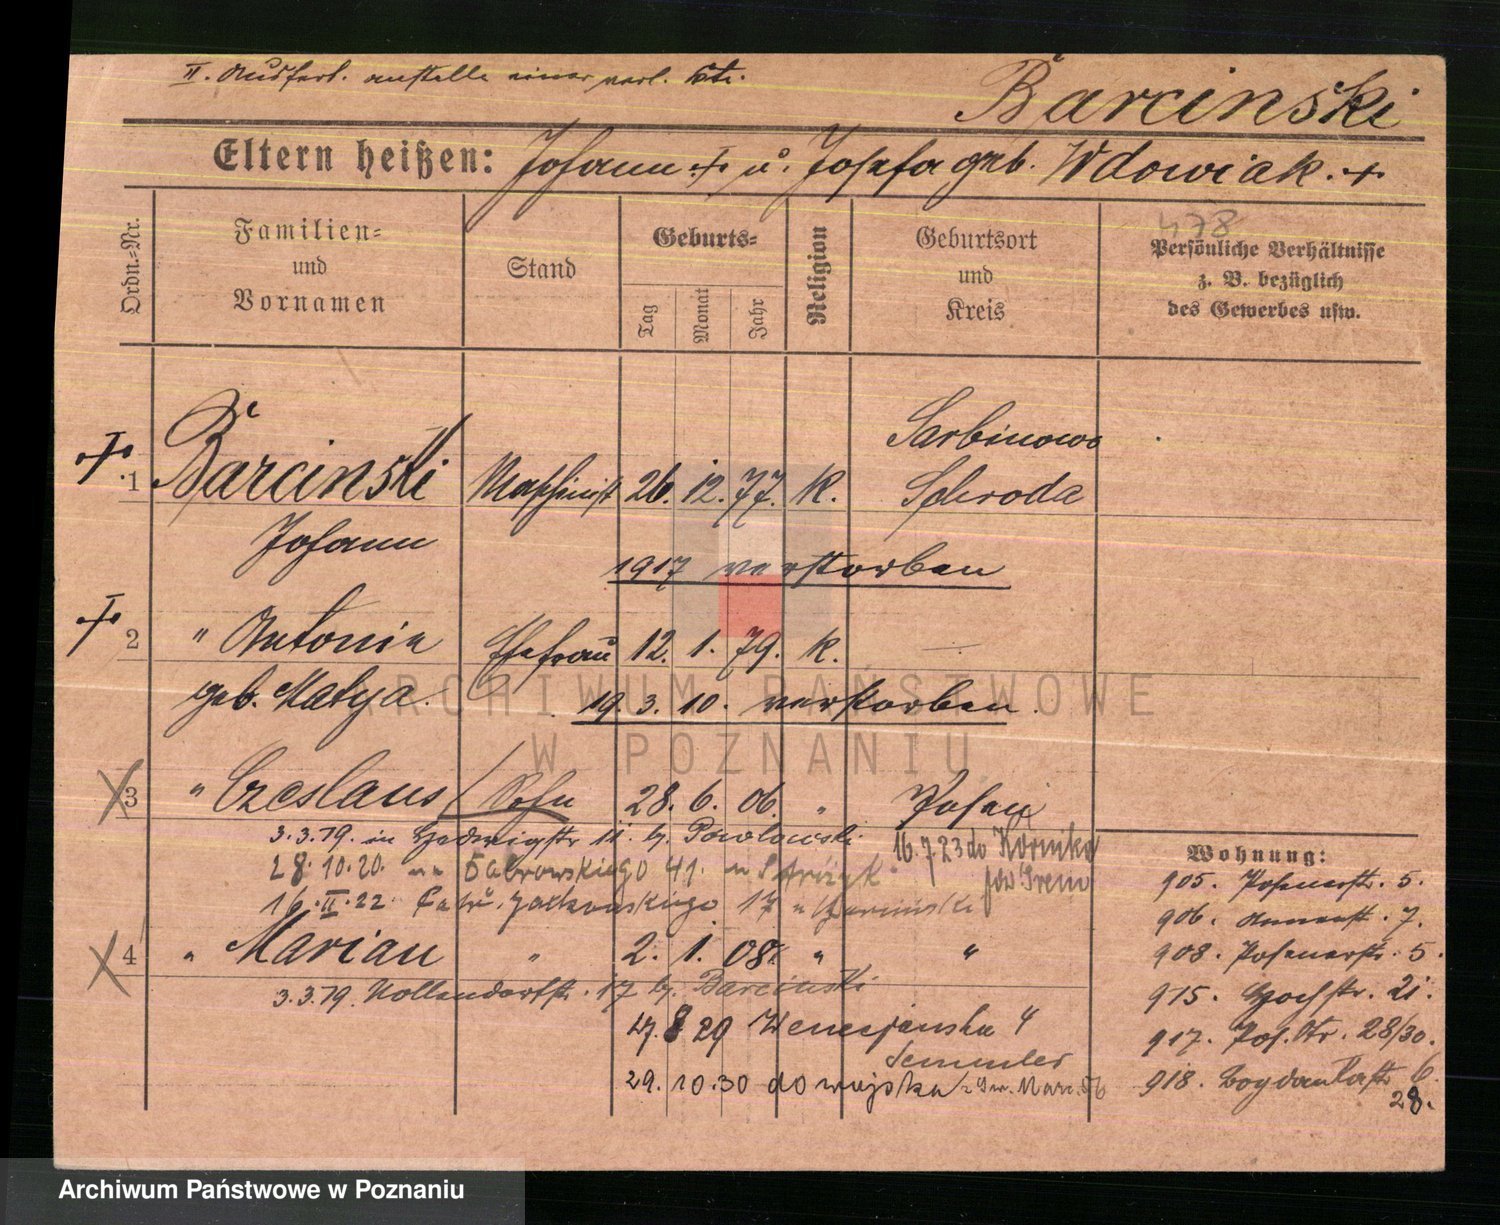 II. Ausfert. anstelle einer verl. Kte.
Barcinski
Eltern heißen: Johann + u. Josefa geb. Wdowiak. +
478
Ordn.-Nr.
Familien=
und
Vornamen
Stand
Geburts=
Tag
Monat
Jahr
Religion
Geburtsort
und
Kreis
Persönliche Verhältnisse
z. B. bezüglich
des Gewerbes usw.
Sarbinowo
+ 1 Barcinski Maschinist 26. 12. 77. K. Schroda
Johann
1917 verstorben
+ 2 " Antonie Ehefrau 12. 1. 79. K.
geb. Matya.
19. 3. 10. verstorben.
3 " Czeslaus Sohn 28. 6. 06. " Posen
3.3.19. in Hedwigstr 11 bj. Pawlowski
16.7.23 do Kórnika
28.10.20. 41.
pow Śrem
16.II.22. 17
4 " Marian " 2. 1. 08. " "
3.3.19. Kollendorfstr. 17 bj. Barcinski
17. 8 29 Wenecjańska 4
Semmler
29. 10. 30 do wojska
Wohnung:
905. Posenerstr. 5.
906. Annenstr. 7.
908. Posenerstr. 5.
915. Hochstr. 21.
917. Pos. Str. 28/30.
918. Bogdankastr 6.
28.
ARCHIWUM PAŃSTWOWE
W POZNANIU
Archiwum Państwowe w Poznaniu